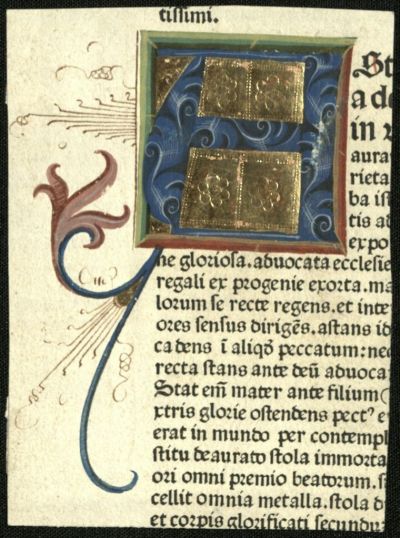 tissimi.
St
a de
in v
aura
rieta
ba ist
tis ad
expo
ne gloriosa. aduocata ecclesie
regali ex progenie exorta. ma
lorum se recte regens. et inte
ores sensus dirigēs. astans id
ca dens ī aliqȝ peccatum: nec
recta stans ante deū aduoca
Stat em̄ mater ante filium
xtris glorie ostendens pectꝰ e
erat in mundo per contempl
stitu deaurato stola immorta
ori omni premio beatorum. si
cellit omnia metalla. stola d
et corpis glorificati secundu